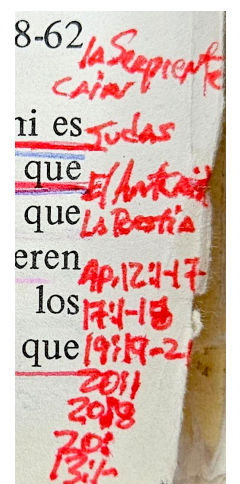 8-62
la Serpiente
Cain
ni es Judas
que El Anticrist
que La Bestia
eren Ap. 12:1-17-
los 17:1-18
que 19:19-21
2011
2018
20:
13:1-